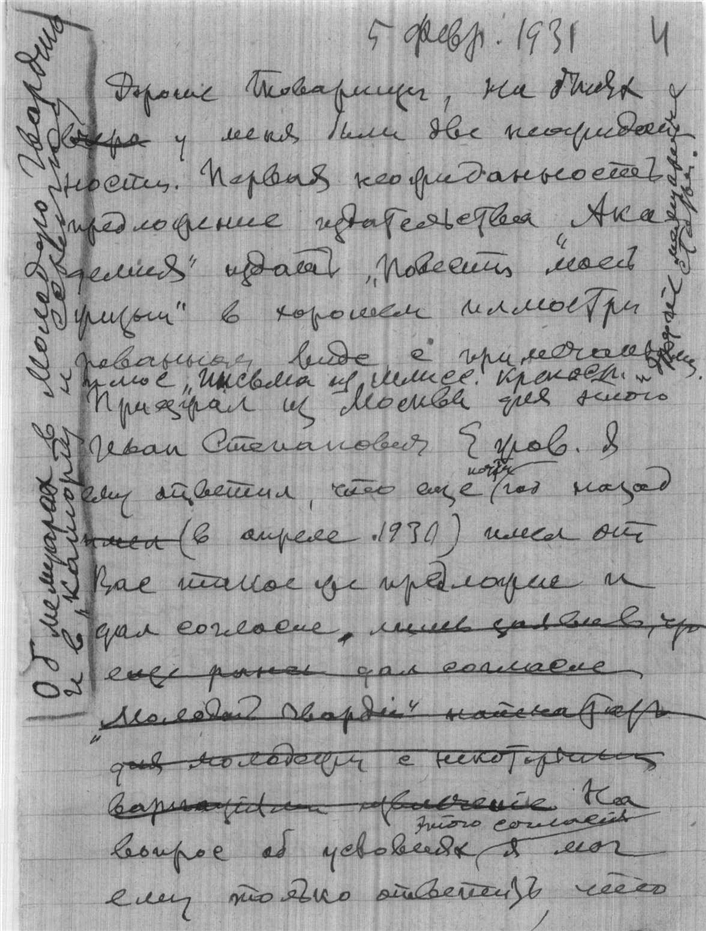 5 февр. 1931 4
Дорогие товарищи, на днях
вчера у меня были две неожидан
ности. Первая неожиданность
предложение издательства "Ака
демия" издать "Повесть моей
жизни" в хорошем иллюстри
рованном виде с примечаниями
плюс "Письма из шлисс. крепости"
Приезжал из Москвы для этого
Иван Степанович Ежов. Я
ему ответил, что еще почти год назад
имел (в апреле 1930) имел от
Вас такое же предложие и
дал согласие, лишь заявив, что
еще раньше дал согласие
"Молодой Гвардии" напечатать
для молодежи с некоторыми
На
вопрос об условиях этого согласия я мог
ему только ответить, что
Об мемуарах в Молодую Гвардию
и в "Каторгу и ссылку"